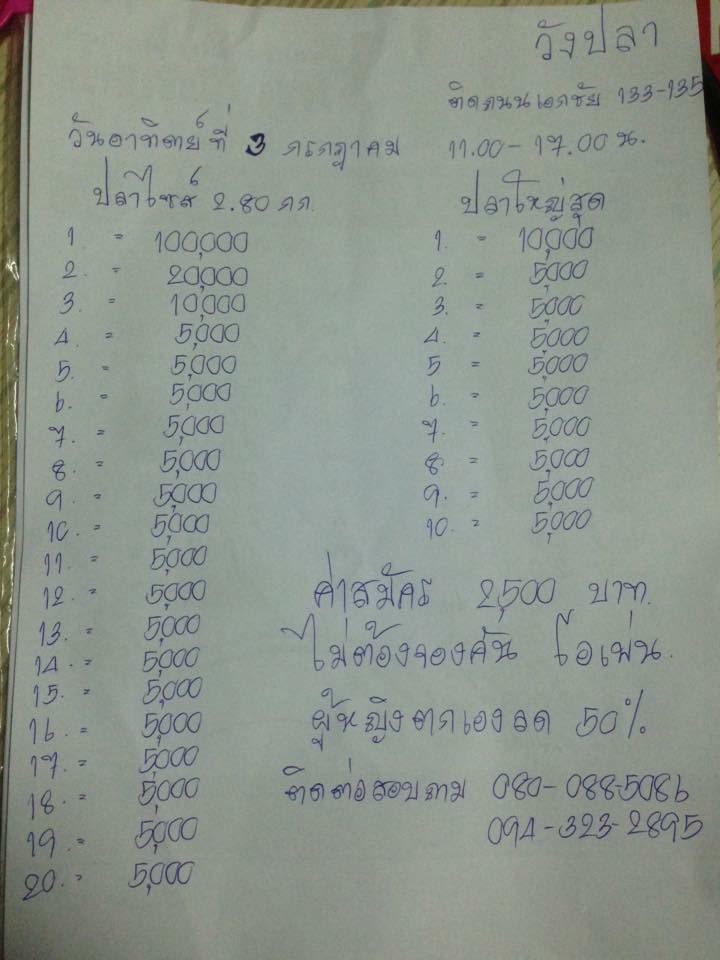 วังปลา
ติดถนนเอกชัย 133-135
วันอาทิตย์ที่ 3 กรกฎาคม 11.00 - 17.00 น.
ปลาไซส์ 2.80 กก.
1. = 100,000
2. = 20,000
3. = 10,000
4. = 5,000
5. = 5,000
6. = 5,000
7. = 5,000
8. = 5,000
9. = 5,000
10. = 5,000
11. = 5,000
12. = 5,000
13. = 5,000
14. = 5,000
15. = 5,000
16. = 5,000
17. = 5,000
18. = 5,000
19. = 5,000
20. = 5,000
ปลาใหญ่สุด
1. = 10,000
2. = 5,000
3. = 5,000
4. = 5,000
5 = 5,000
6. = 5,000
7. = 5,000
8 = 5,000
9. = 5,000
10. = 5,000
ค่าสมัคร 2,500 บาท.
ไม่ต้องจองคัน โอเพ่น.
ผู้หญิงตกเองลด 50%
ติดต่อสอบถาม 080-088-5086
094-323-2895